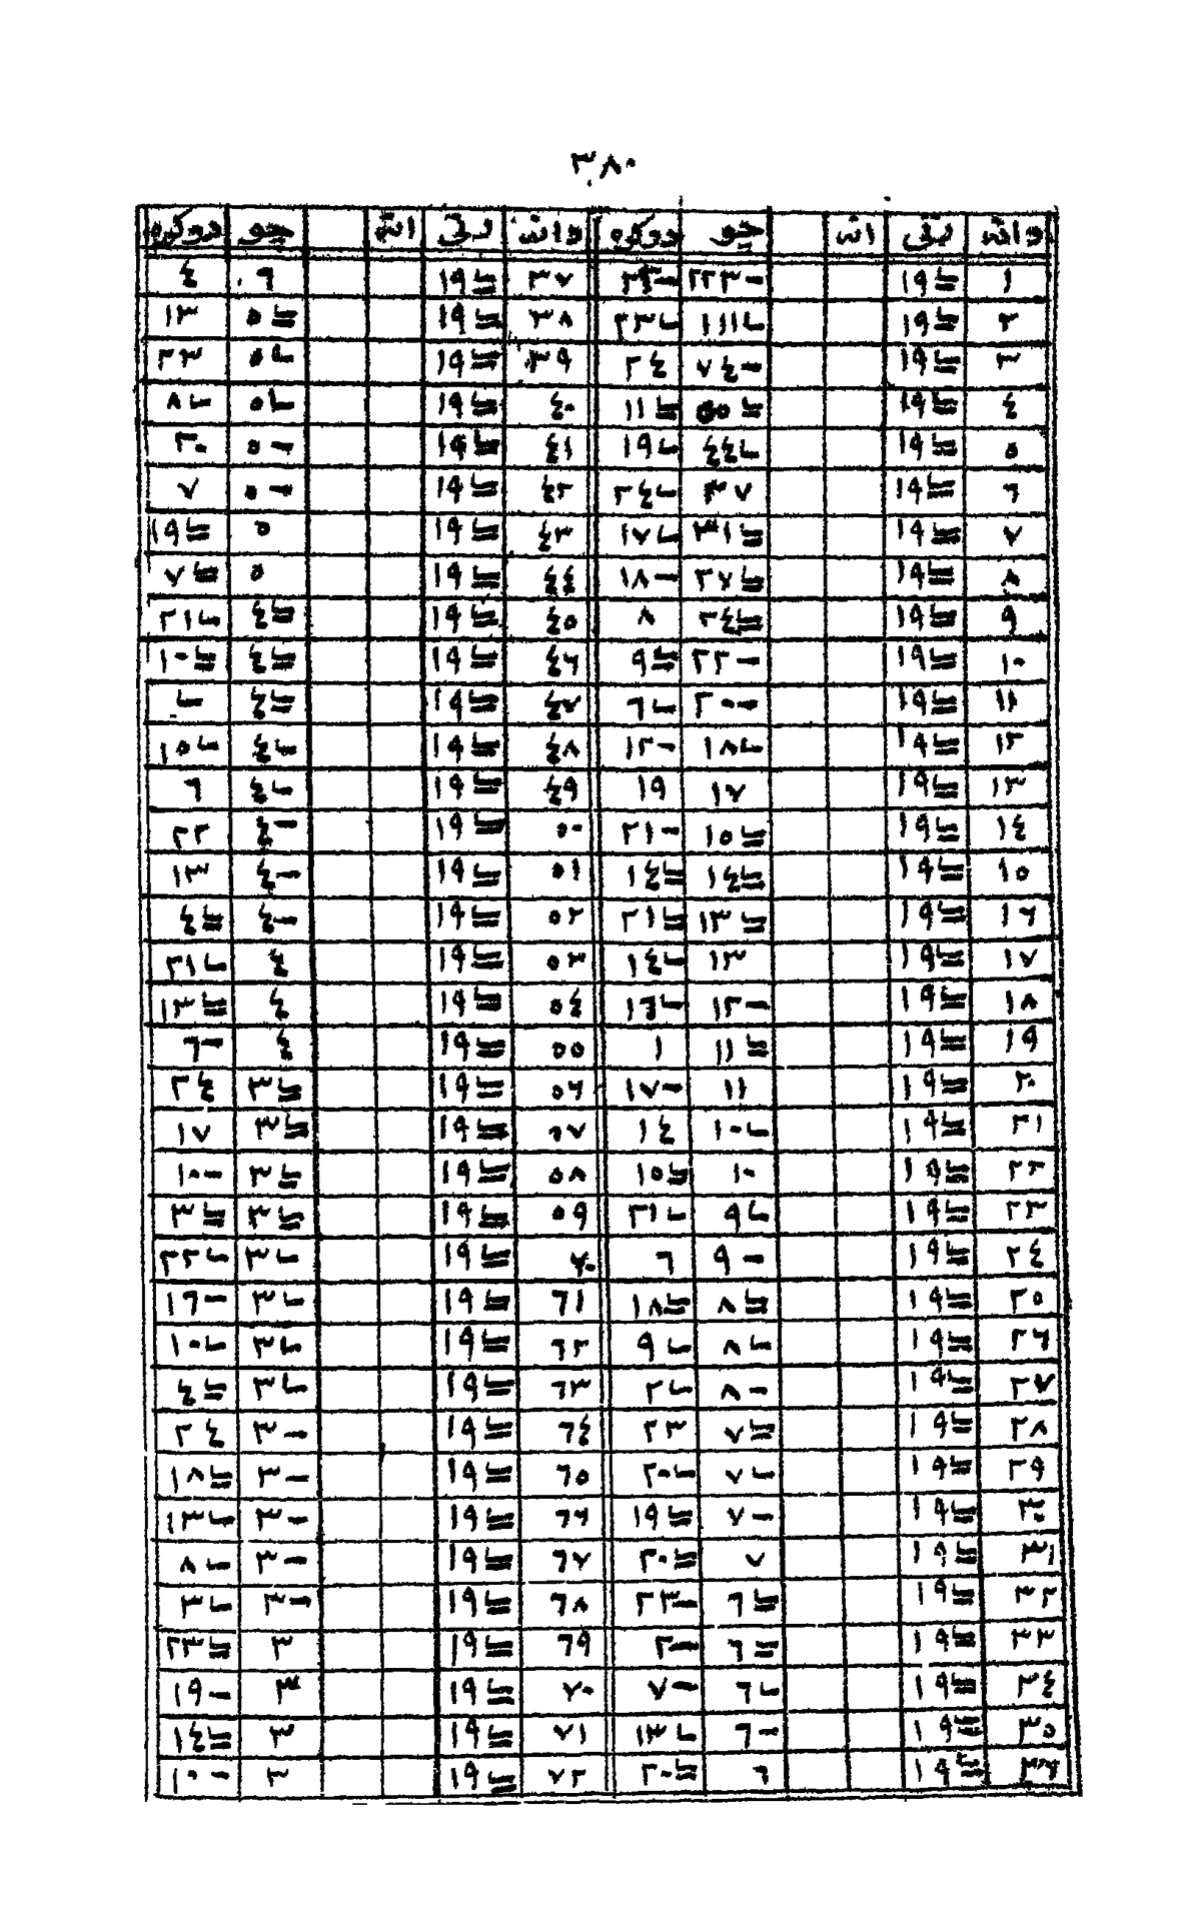 ٣٨٠
دانه رتى انه چو دوكره دانه رتى انه چو دوكره
١ ١٩ ٢٢٣- ٣٧ ١٩ ٦ ٤
٢ ١٩ ١١١ ٢٣ ٣٨ ١٩ ٥ ١٣
٣ ١٩ ٧٤- ٢٤ ٣٩ ١٩ ٥ ٢٣
٤ ١٩ ٥٥ ١١ ٤٠ ١٩ ٥ ٨
٥ ١٩ ٤٤ ١٩ ٤١ ١٩ ٥- ٢٠
٦ ١٩ ٣٧ ٢٤ ٤٢ ١٩ ٥- ٧
٧ ١٩ ٣١ ١٧ ٤٣ ١٩ ٥ ١٩
٨ ١٩ ٢٧ ١٨- ٤٤ ١٩ ٥ ٧
٩ ١٩ ٢٤ ٨ ٤٥ ١٩ ٤ ٢١
١٠ ١٩ ٢٢- ٩ ٤٦ ١٩ ٤ ١٠
١١ ١٩ ٢٠- ٦ ٤٧ ١٩ ٤
١٢ ١٩ ١٨ ١٢- ٤٨ ١٩ ٤ ١٥
١٣ ١٩ ١٧ ١٩ ٤٩ ١٩ ٤ ٦
١٤ ١٩ ١٥ ٢١- ٥٠ ١٩ ٤- ٢٢
١٥ ١٩ ١٤ ١٤ ٥١ ١٩ ٤- ١٣
١٦ ١٩ ١٣ ٢١ ٥٢ ١٩ ٤- ٤
١٧ ١٩ ١٣ ١٤ ٥٣ ١٩ ٤ ٢١
١٨ ١٩ ١٢- ١٦ ٥٤ ١٩ ٤ ١٣
١٩ ١٩ ١١ ١ ٥٥ ١٩ ٤ ٦-
٢٠ ١٩ ١١ ١٧- ٥٦ ١٩ ٣ ٢٤
٢١ ١٩ ١٠ ١٤ ٥٧ ١٩ ٣ ١٧
٢٢ ١٩ ١٠ ١٥ ٥٨ ١٩ ٣ ١٠-
٢٣ ١٩ ٩ ٢١ ٥٩ ١٩ ٣ ٣
٢٤ ١٩ ٩- ٦ ٦٠ ١٩ ٣ ٢٢
٢٥ ١٩ ٨ ١٨ ٦١ ١٩ ٣ ١٦-
٢٦ ١٩ ٨ ٩ ٦٢ ١٩ ٣ ١٠
٢٧ ١٩ ٨- ٢ ٦٣ ١٩ ٣ ٤
٢٨ ١٩ ٧ ٢٣ ٦٤ ١٩ ٣- ٢٤
٢٩ ١٩ ٧ ٢٠ ٦٥ ١٩ ٣- ١٨
٣٠ ١٩ ٧- ١٩ ٦٦ ١٩ ٣- ١٣
٣١ ١٩ ٧ ٢٠ ٦٧ ١٩ ٣- ٨
٣٢ ١٩ ٦ ٢٣- ٦٨ ١٩ ٣- ٣
٣٣ ١٩ ٦ ٢- ٦٩ ١٩ ٣ ٢٣
٣٤ ١٩ ٦ ٧- ٧٠ ١٩ ٣ ١٩-
٣٥ ١٩ ٦- ١٣ ٧١ ١٩ ٣ ١٤
٣٦ ١٩ ٦ ٢٠ ٧٢ ١٩ ٣ ١٠-